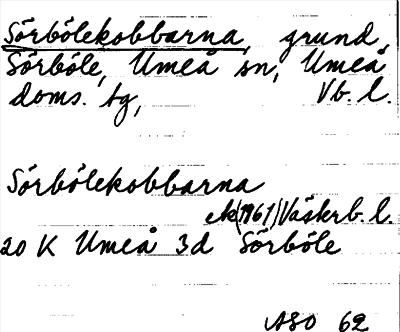 Sörbölekobbarna, grund,
Sörböle, Umeå sn, Umeå
doms. tg, Vb. l.
Sörbölekobbarna
ek (1961) Västerb. l.
20 K Umeå 3d Sörböle
ASO 62